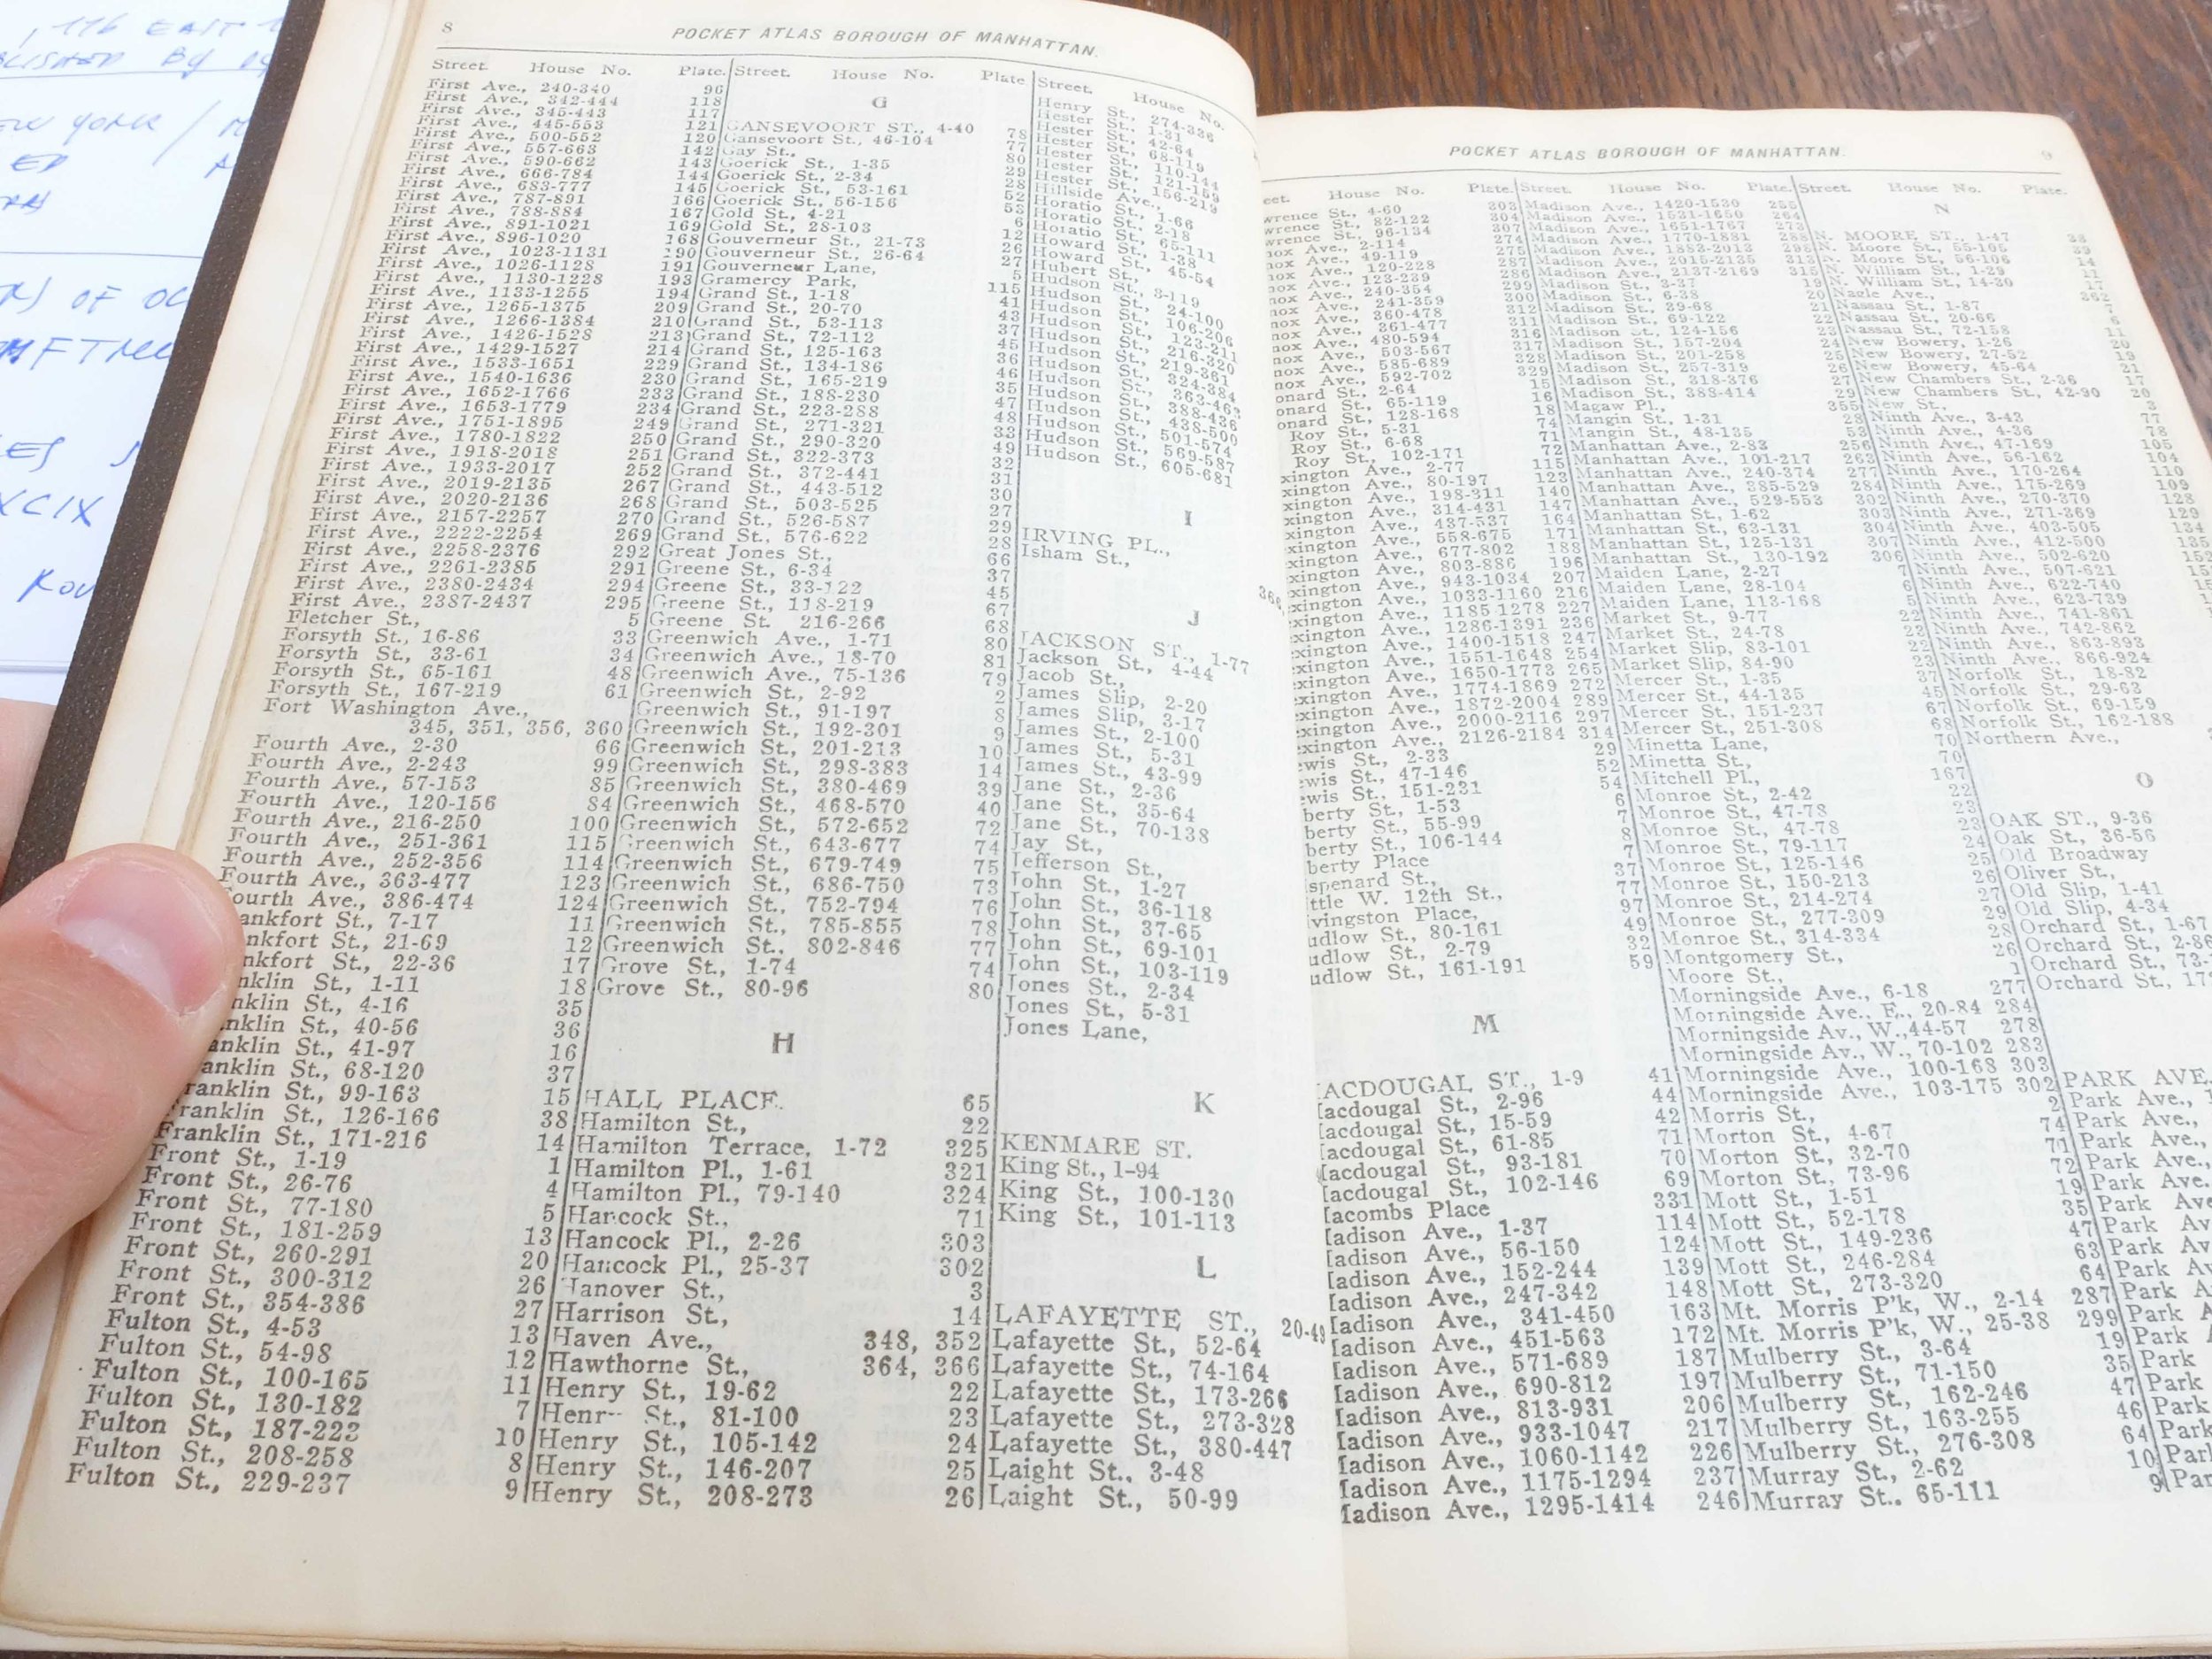 , 116 EAST
8
POCKET ATLAS BOROUGH OF MANHATTAN.
Street. House No. Plate.
First Ave., 240-340 96
First Ave., 342-444 118
First Ave., 345-443 117
First Ave., 445-553 121
First Ave., 500-552 120
First Ave., 557-663 142
First Ave., 590-662 143
First Ave., 666-784 144
First Ave., 683-777 145
First Ave., 787-891 166
First Ave., 788-884 167
First Ave., 891-1021 169
First Ave., 896-1020 168
First Ave., 1023-1131 190
First Ave., 1026-1128 191
First Ave., 1130-1228 193
First Ave., 1133-1255 194
First Ave., 1265-1375 209
First Ave., 1266-1384 210
First Ave., 1426-1528 213
First Ave., 1429-1527 214
First Ave., 1533-1651 229
First Ave., 1540-1636 230
First Ave., 1652-1766 233
First Ave., 1653-1779 234
First Ave., 1751-1895 249
First Ave., 1780-1822 250
First Ave., 1918-2018 251
First Ave., 1933-2017 252
First Ave., 2019-2135 267
First Ave., 2020-2136 268
First Ave., 2157-2257 270
First Ave., 2222-2254 269
First Ave., 2258-2376 292
First Ave., 2261-2385 291
First Ave., 2380-2434 294
First Ave., 2387-2437 295
Fletcher St., 5
Forsyth St., 16-86 33
Forsyth St., 33-61 34
Forsyth St., 65-161 48
Forsyth St., 167-219 61
Fort Washington Ave.,
345, 351, 356, 360
Fourth Ave., 2-30 66
Fourth Ave., 2-243 99
Fourth Ave., 57-153 85
Fourth Ave., 120-156 84
Fourth Ave., 216-250 100
Fourth Ave., 251-361 115
Fourth Ave., 252-356 114
Fourth Ave., 363-477 123
ourth Ave., 386-474 124
ankfort St., 7-17 11
nkfort St., 21-69 12
nkfort St., 22-36 17
nklin St., 1-11 18
nklin St., 4-16 35
nklin St., 40-56 36
anklin St., 41-97 16
anklin St., 68-120 37
ranklin St., 99-163 15
ranklin St., 126-166 38
Franklin St., 171-216 14
Front St., 1-19 1
Front St., 26-76 4
Front St., 77-180 5
Front St., 181-259 13
Front St., 260-291 20
Front St., 300-312 26
Front St., 354-386 27
Fulton St., 4-53 13
Fulton St., 54-98 12
Fulton St., 100-165 11
Fulton St., 130-182 7
Fulton St., 187-223 10
Fulton St., 208-258 8
Fulton St., 229-237 9
Street. House No. Plate
G
GANSEVOORT ST., 4-40 78
Gansevoort St., 46-104 77
Gay St., 80
Goerick St., 1-35 29
Goerick St., 2-34 28
Goerick St., 53-161 52
Goerick St., 56-156 53
Gold St., 4-21 6
Gold St., 28-103 12
Gouverneur St., 21-73 26
Gouverneur St., 26-64 27
Gouverneur Lane, 5
Gramercy Park, 115
Grand St., 1-18 41
Grand St., 20-70 43
Grand St., 53-113 37
Grand St., 72-112 45
Grand St., 125-163 36
Grand St., 134-186 46
Grand St., 165-219 35
Grand St., 188-230 47
Grand St., 223-288 48
Grand St., 271-321 33
Grand St., 290-320 49
Grand St., 322-373 32
Grand St., 372-441 31
Grand St., 443-512 30
Grand St., 503-525 27
Grand St., 526-587 29
Grand St., 576-622 28
Great Jones St., 66
Greene St., 6-34 37
Greene St., 33-122 45
Greene St., 118-219 67
Greene St. 216-266 68
Greenwich Ave., 1-71 80
Greenwich Ave., 18-70 81
Greenwich Ave., 75-136 79
Greenwich St., 2-92 2
Greenwich St., 91-197 8
Greenwich St., 192-301 9
Greenwich St., 201-213 10
Greenwich St., 298-383 14
Greenwich St., 380-469 39
Greenwich St., 468-570 40
Greenwich St., 572-652 72
Greenwich St., 643-677 74
Greenwich St., 679-749 75
Greenwich St., 686-750 73
Greenwich St., 752-794 76
Greenwich St., 785-855 78
Greenwich St., 802-846 77
Grove St., 1-74 74
Grove St., 80-96 80
H
HALL PLACE. 65
Hamilton St., 22
Hamilton Terrace, 1-72 325
Hamilton Pl., 1-61 321
Hamilton Pl., 79-140 324
Hancock St., 71
Hancock Pl., 2-26 303
Hancock Pl., 25-37 302
Hanover St., 3
Harrison St., 14
Haven Ave., 348, 352
Hawthorne St., 364, 366
Henry St., 19-62 22
Henr-- St., 81-100 23
Henry St., 105-142 24
Henry St., 146-207 25
Henry St., 208-273 26
Street. House No.
Henry St., 274-336
Hester St., 1-31
Hester St., 42-64
Hester St., 68-119
Hester St., 110-144
Hester St., 121-159
Hester St., 156-219
Hillside Ave.,
Horatio St., 1-66
Horatio St., 2-18
Horatio St., 65-111
Howard St., 1-38
Howard St., 45-54
Hubert St.,
Hudson St., 3-119
Hudson St., 24-100
Hudson St., 106-206
Hudson St., 123-211
Hudson St., 216-320
Hudson St., 219-361
Hudson St., 324-384
Hudson St., 363-463
Hudson St., 388-436
Hudson St., 438-500
Hudson St., 501-574
Hudson St., 569-587
Hudson St., 605-681
I
IRVING PL.,
Isham St.,
J
JACKSON ST., 1-77
Jackson St., 4-44
Jacob St.,
James Slip, 2-20
James Slip, 3-17
James St., 2-100
James St., 5-31
James St., 43-99
Jane St., 2-36
Jane St., 35-64
Jane St., 70-138
Jay St.,
Jefferson St.,
John St., 1-27
John St., 36-118
John St., 37-65
John St., 69-101
John St., 103-119
Jones St., 2-34
Jones St., 5-31
Jones Lane,
K
KENMARE ST.
King St., 1-94
King St., 100-130
King St., 101-113
L
LAFAYETTE ST., 20-49
Lafayette St., 52-64
Lafayette St., 74-164
Lafayette St., 173-266
Lafayette St., 273-328
Lafayette St., 380-447
Laight St., 3-48
Laight St., 50-99
POCKET ATLAS BOROUGH OF MANHATTAN.
9
eet. House No. Plate.
wrence St., 4-60 303
wrence St., 82-122 304
wrence St., 96-134 307
nox Ave., 2-114 274
nox Ave., 49-119 275
nox Ave., 120-228 287
nox Ave., 123-239 286
nox Ave., 240-354 299
nox Ave., 241-359 300
nox Ave., 360-478 312
nox Ave., 361-477 311
nox Ave., 480-594 316
nox Ave., 503-567 317
nox Ave., 585-689 328
nox Ave., 592-702 329
onard St., 2-64 15
onard St., 65-119 16
onard St., 128-168 18
Roy St., 5-31 74
Roy St., 6-68 71
Roy St., 102-171 72
xington Ave., 2-77 115
xington Ave., 80-197 123
xington Ave., 198-311 140
xington Ave., 314-431 147
xington Ave., 437-537 164
xington Ave., 558-675 171
xington Ave., 677-802 188
xington Ave., 803-886 196
xington Ave., 943-1034 207
xington Ave., 1033-1160 216
xington Ave., 1185 1278 227
xington Ave., 1286-1391 236
xington Ave., 1400-1518 247
xington Ave., 1551-1648 254
xington Ave., 1650-1773 265
xington Ave., 1774-1869 272
xington Ave., 1872-2004 289
xington Ave., 2000-2116 297
xington Ave., 2126-2184 314
wis St., 2-33 29
wis St., 47-146 52
wis St., 151-231 54
berty St., 1-53 6
berty St., 55-99 7
berty St., 106-144 8
berty Place 7
spenard St., 37
ttle W. 12th St., 77
vingston Place, 97
udlow St., 80-161 49
udlow St., 2-79 32
udlow St., 161-191 59
M
ACDOUGAL ST., 1-9 41
acdougal St., 2-96 44
acdougal St., 15-59 42
acdougal St., 61-85 71
acdougal St., 93-181 70
acdougal St., 102-146 69
acombs Place 331
adison Ave., 1-37 114
adison Ave., 56-150 124
adison Ave., 152-244 139
adison Ave., 247-342 148
adison Ave., 341-450 163
adison Ave., 451-563 172
adison Ave., 571-689 187
adison Ave., 690-812 197
adison Ave., 813-931 206
adison Ave., 933-1047 217
adison Ave., 1060-1142 226
adison Ave., 1175-1294 237
adison Ave., 1295-1414 246
Street. House No. Plate.
Madison Ave., 1420-1530 255
Madison Ave., 1531-1650 264
Madison Ave., 1651-1767 273
Madison Ave., 1770-1881 288
Madison Ave., 1882-2013 298
Madison Ave., 2015-2135 313
Madison Ave., 2137-2169 315
Madison St., 3-37 19
Madison St., 6-38 20
Madison St., 39-68 21
Madison St., 69-122 22
Madison St., 124-156 23
Madison St., 157-204 24
Madison St., 201-258 25
Madison St., 257-319 26
Madison St., 318-376 27
Madison St., 388-414 29
Magaw Pl., 355
Mangin St., 1-31 28
Mangin St., 48-135 53
Manhattan Ave., 2-83 256
Manhattan Ave., 101-217 263
Manhattan Ave., 240-374 277
Manhattan Ave., 385-529 284
Manhattan Ave., 529-553 302
Manhattan St., 1-62 303
Manhattan St., 63-131 304
Manhattan St., 125-131 307
Manhattan St., 130-192 306
Maiden Lane, 2-27 7
Maiden Lane, 28-104 6
Maiden Lane, 113-168 5
Market St., 9-77 22
Market St., 24-78 23
Market Slip, 83-101 22
Market Slip, 84-90 23
Mercer St., 1-35 37
Mercer St., 44-135 45
Mercer St., 151-237 67
Mercer St., 251-308 68
Minetta Lane, 70
Minetta St., 70
Mitchell Pl., 167
Monroe St., 2-42 22
Monroe St., 47-78 23
Monroe St., 47-78 23
Monroe St., 79-117 24
Monroe St., 125-146 25
Monroe St., 150-213 26
Monroe St., 214-274 27
Monroe St., 277-309 29
Monroe St., 314-334 28
Montgomery St., 26
Moore St., 1
Morningside Ave., 6-18 277
Morningside Ave., E., 20-84 284
Morningside Av., W., 44-57 278
Morningside Av., W., 70-102 283
Morningside Ave., 100-168 303
Morningside Ave., 103-175 302
Morris St., 2
Morton St., 4-67 74
Morton St., 32-70 71
Morton St., 73-96 72
Mott St., 1-51 19
Mott St., 52-178 35
Mott St., 149-236 47
Mott St., 246-284 63
Mott St., 273-320 64
Mt. Morris P'k, W., 2-14 287
Mt. Morris P'k, W., 25-38 299
Mulberry St., 3-64 19
Mulberry St., 71-150 35
Mulberry St., 162-246 47
Mulberry St., 163-255 46
Mulberry St., 276-308 64
Murray St., 2-62 10
Murray St., 65-111 9
Street. House No. Plate.
N
N. MOORE ST., 1-47
N. Moore St., 55-105
N. Moore St., 56-106
N. William St., 1-29
N. William St., 14-30
Nagle Ave., 362
Nassau St., 1-87
Nassau St., 20-66
Nassau St., 72-158
New Bowery, 1-26
New Bowery, 27-52
New Bowery, 45-64
New Chambers St., 2-36
New Chambers St., 42-90
New St.,
Ninth Ave., 3-43 77
Ninth Ave., 4-36 78
Ninth Ave., 47-169 105
Ninth Ave., 56-162 104
Ninth Ave., 170-264 110
Ninth Ave., 175-269 109
Ninth Ave., 270-370 128
Ninth Ave., 271-369 129
Ninth Ave., 403-505 134
Ninth Ave., 412-500 135
Ninth Ave., 502-620
Ninth Ave., 507-621
Ninth Ave., 622-740
Ninth Ave., 623-739
Ninth Ave., 741-861
Ninth Ave., 742-862
Ninth Ave., 863-893
Ninth Ave., 866-924
Norfolk St., 18-82
Norfolk St., 29-63
Norfolk St., 69-159
Norfolk St., 162-188
Northern Ave.,
O
OAK ST., 9-36
Oak St., 36-56
Old Broadway
Oliver St.,
Old Slip, 1-41
Old Slip, 4-34
Orchard St., 1-67
Orchard St., 2-86
Orchard St., 73-
Orchard St., 17
PARK AVE
Park Ave., 1
Park Ave.,
Park Ave.,
Park Ave.,
Park Ave.
Park Ave
Park Av
Park Av
Park Av
Park A
Park A
Park A
Park
Park
Park
Park
Par
Par